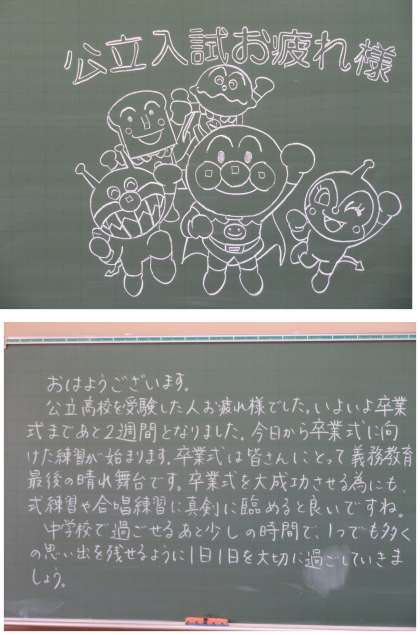 公立入試お疲れ様
おはようございます。
公立高校を受験した人お疲れ様でした。いよいよ卒業
式まであと2週間となりました。今日から卒業式に向
けた練習が始まります。卒業式は皆さんにとって義務教育
最後の晴れ舞台です。卒業式を大成功させる為にも、
式練習や合唱練習に真剣に臨めると良いですね。
中学校で過ごせるあと少しの時間で、1つでも多く
の思い出を残せるように1日1日を大切に過ごしていきま
しょう。